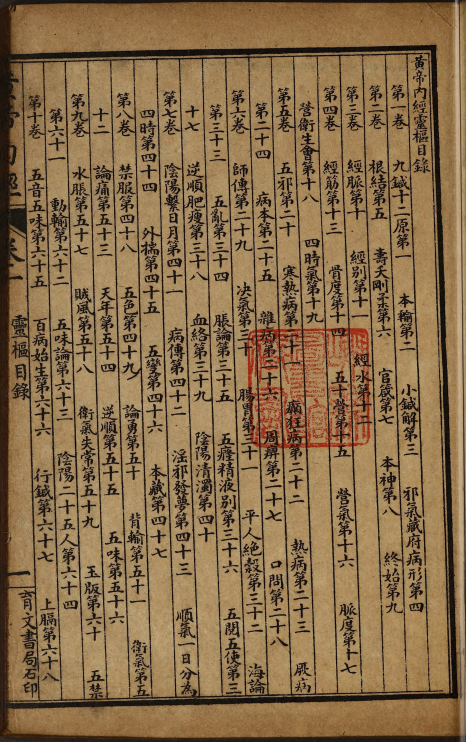 黃帝內經靈樞目錄
第一卷 九鍼十二原第一 本輸第二 小鍼解第三 邪氣藏府病形第四
第二卷 根結第五 壽夭剛柔第六 官鍼第七 本神第八 終始第九
第三卷 經脈第十 經別第十一 經水第十二
第四卷 經筋第十三 骨度第十四 五十營第十五 營氣第十六 脈度第十七
營衛生會第十八 四時氣第十九
第五卷 五邪第二十 寒熱病第二十一 癲狂病第二十二 熱病第二十三 厥病
第二十四 病本第二十五 雜病第二十六 周痹第二十七 口問第二十八
第六卷 師傳第二十九 決氣第三十 腸胃第三十一 平人絕穀第三十二 海論
第三十三 五亂第三十四 脹論第三十五 五癃精液別第三十六 五閱五使第三
十七 逆順肥瘦第三十八 血絡第三十九 陰陽清濁第四十
第七卷 陰陽繫日月第四十一 病傳第四十二 淫邪發夢第四十三 順氣一日分為
四時第四十四 外揣第四十五 五變第四十六 本藏第四十七
第八卷 禁服第四十八 五色第四十九 論勇第五十 背輸第五十一 衛氣第五
十二 論痛第五十三 天年第五十四 逆順第五十五 五味第五十六
第九卷 水脹第五十七 賊風第五十八 衛氣失常第五十九 玉版第六十 五禁
第六十一 動輸第六十二 五味論第六十三 陰陽二十五人第六十四
第十卷 五音五味第六十五 百病始生第六十六 行鍼第六十七 上膈第六十八
卷一 靈樞目錄 一 育文書局石印